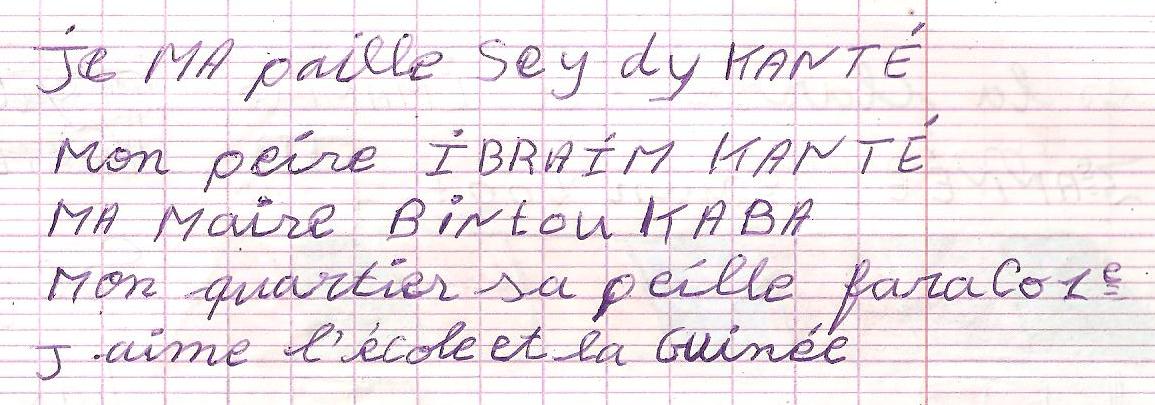 je MA paille Sey dy KANTÉ
Mon peire IBRAIM KANTÉ
MA Maire BiNtou KABA
Mon quartier sa peille faraCo 1e
j aime l'école et la Guinée